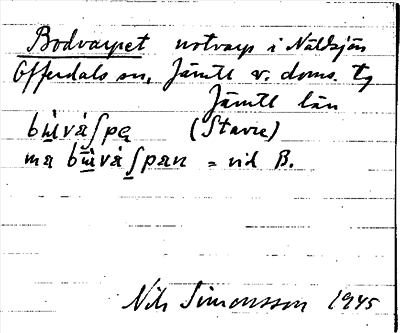 Bodvarpet notvarp i Näldsjön
Offerdals sn, Jämtl v. doms. tg
Jämtl län
(Stavre)
= vid B.
Nils Simonsson 1945